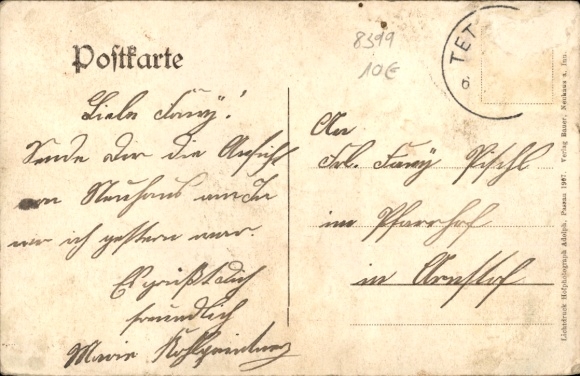 Postkarte
8399
10€
TET
6
Liebe Fanny!
Sende Dir die Ansicht
von Neuhaus am Inn
wo ich gestern war.
Es grüßt Dich
freundlich
Marie
An
Frl. Fanny Pischl
im Pfarrhof
in Arnstorf
Lichtdruck Hofphotograph Adolph, Passau 1907. Verlag Bauer, Neuhaus a. Inn.